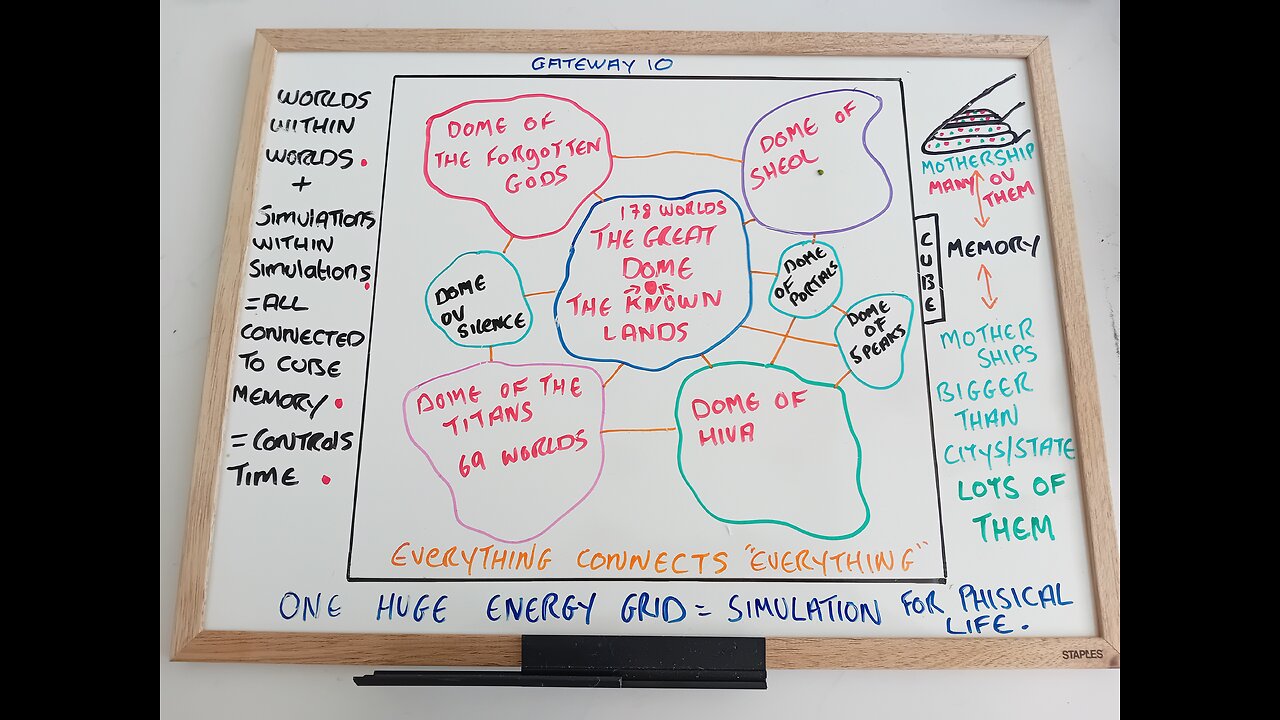 GATEWAY 10
WORLDS
WITHIN
WORLDS.
+
SIMULATIONS
WITHIN
SIMULATIONS.
= ALL
CONNECTED
TO CUBE
MEMORY.
= CONTROLS
TIME.
DOME OF
THE FORGOTTEN
GODS
DOME OF
SHEOL
178 WORLDS
THE GREAT
DOME
THE KNOWN
LANDS
DOME
OV
SILENCE
DOME
OF
PORTALS
DOME
OF
SPEAKS
DOME OF THE
TITANS
69 WORLDS
DOME OF
HIVA
EVERYTHING CONNECTS "EVERYTHING"
CUBE
MOTHERSHIP
MANY OV
THEM
MEMORY
MOTHER
SHIPS
BIGGER
THAN
CITYS/STATE
LOTS OF
THEM
ONE HUGE ENERGY GRID = SIMULATION FOR PHISICAL
LIFE.
STAPLES